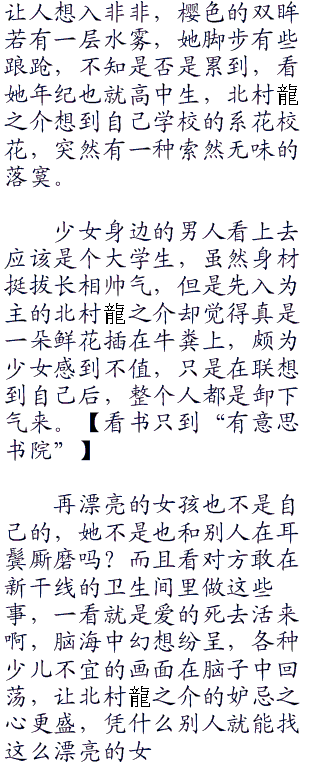 让人想入非非，樱色的双眸
若有一层水雾，她脚步有些
踉跄，不知是否是累到，看
她年纪也就高中生，北村龍
之介想到自己学校的系花校
花，突然有一种索然无味的
落寞。
少女身边的男人看上去
应该是个大学生，虽然身材
挺拔长相帅气，但是先入为
主的北村龍之介却觉得真是
一朵鲜花插在牛粪上，颇为
少女感到不值，只是在联想
到自己后，整个人都是卸下
气来。【看书只到“有意思
书院”】
再漂亮的女孩也不是自
己的，她不是也和别人在耳
鬓厮磨吗？而且看对方敢在
新干线的卫生间里做这些
事，一看就是爱的死去活来
啊，脑海中幻想纷呈，各种
少儿不宜的画面在脑子中回
荡，让北村龍之介的妒忌之
心更盛，凭什么别人就能找
这么漂亮的女